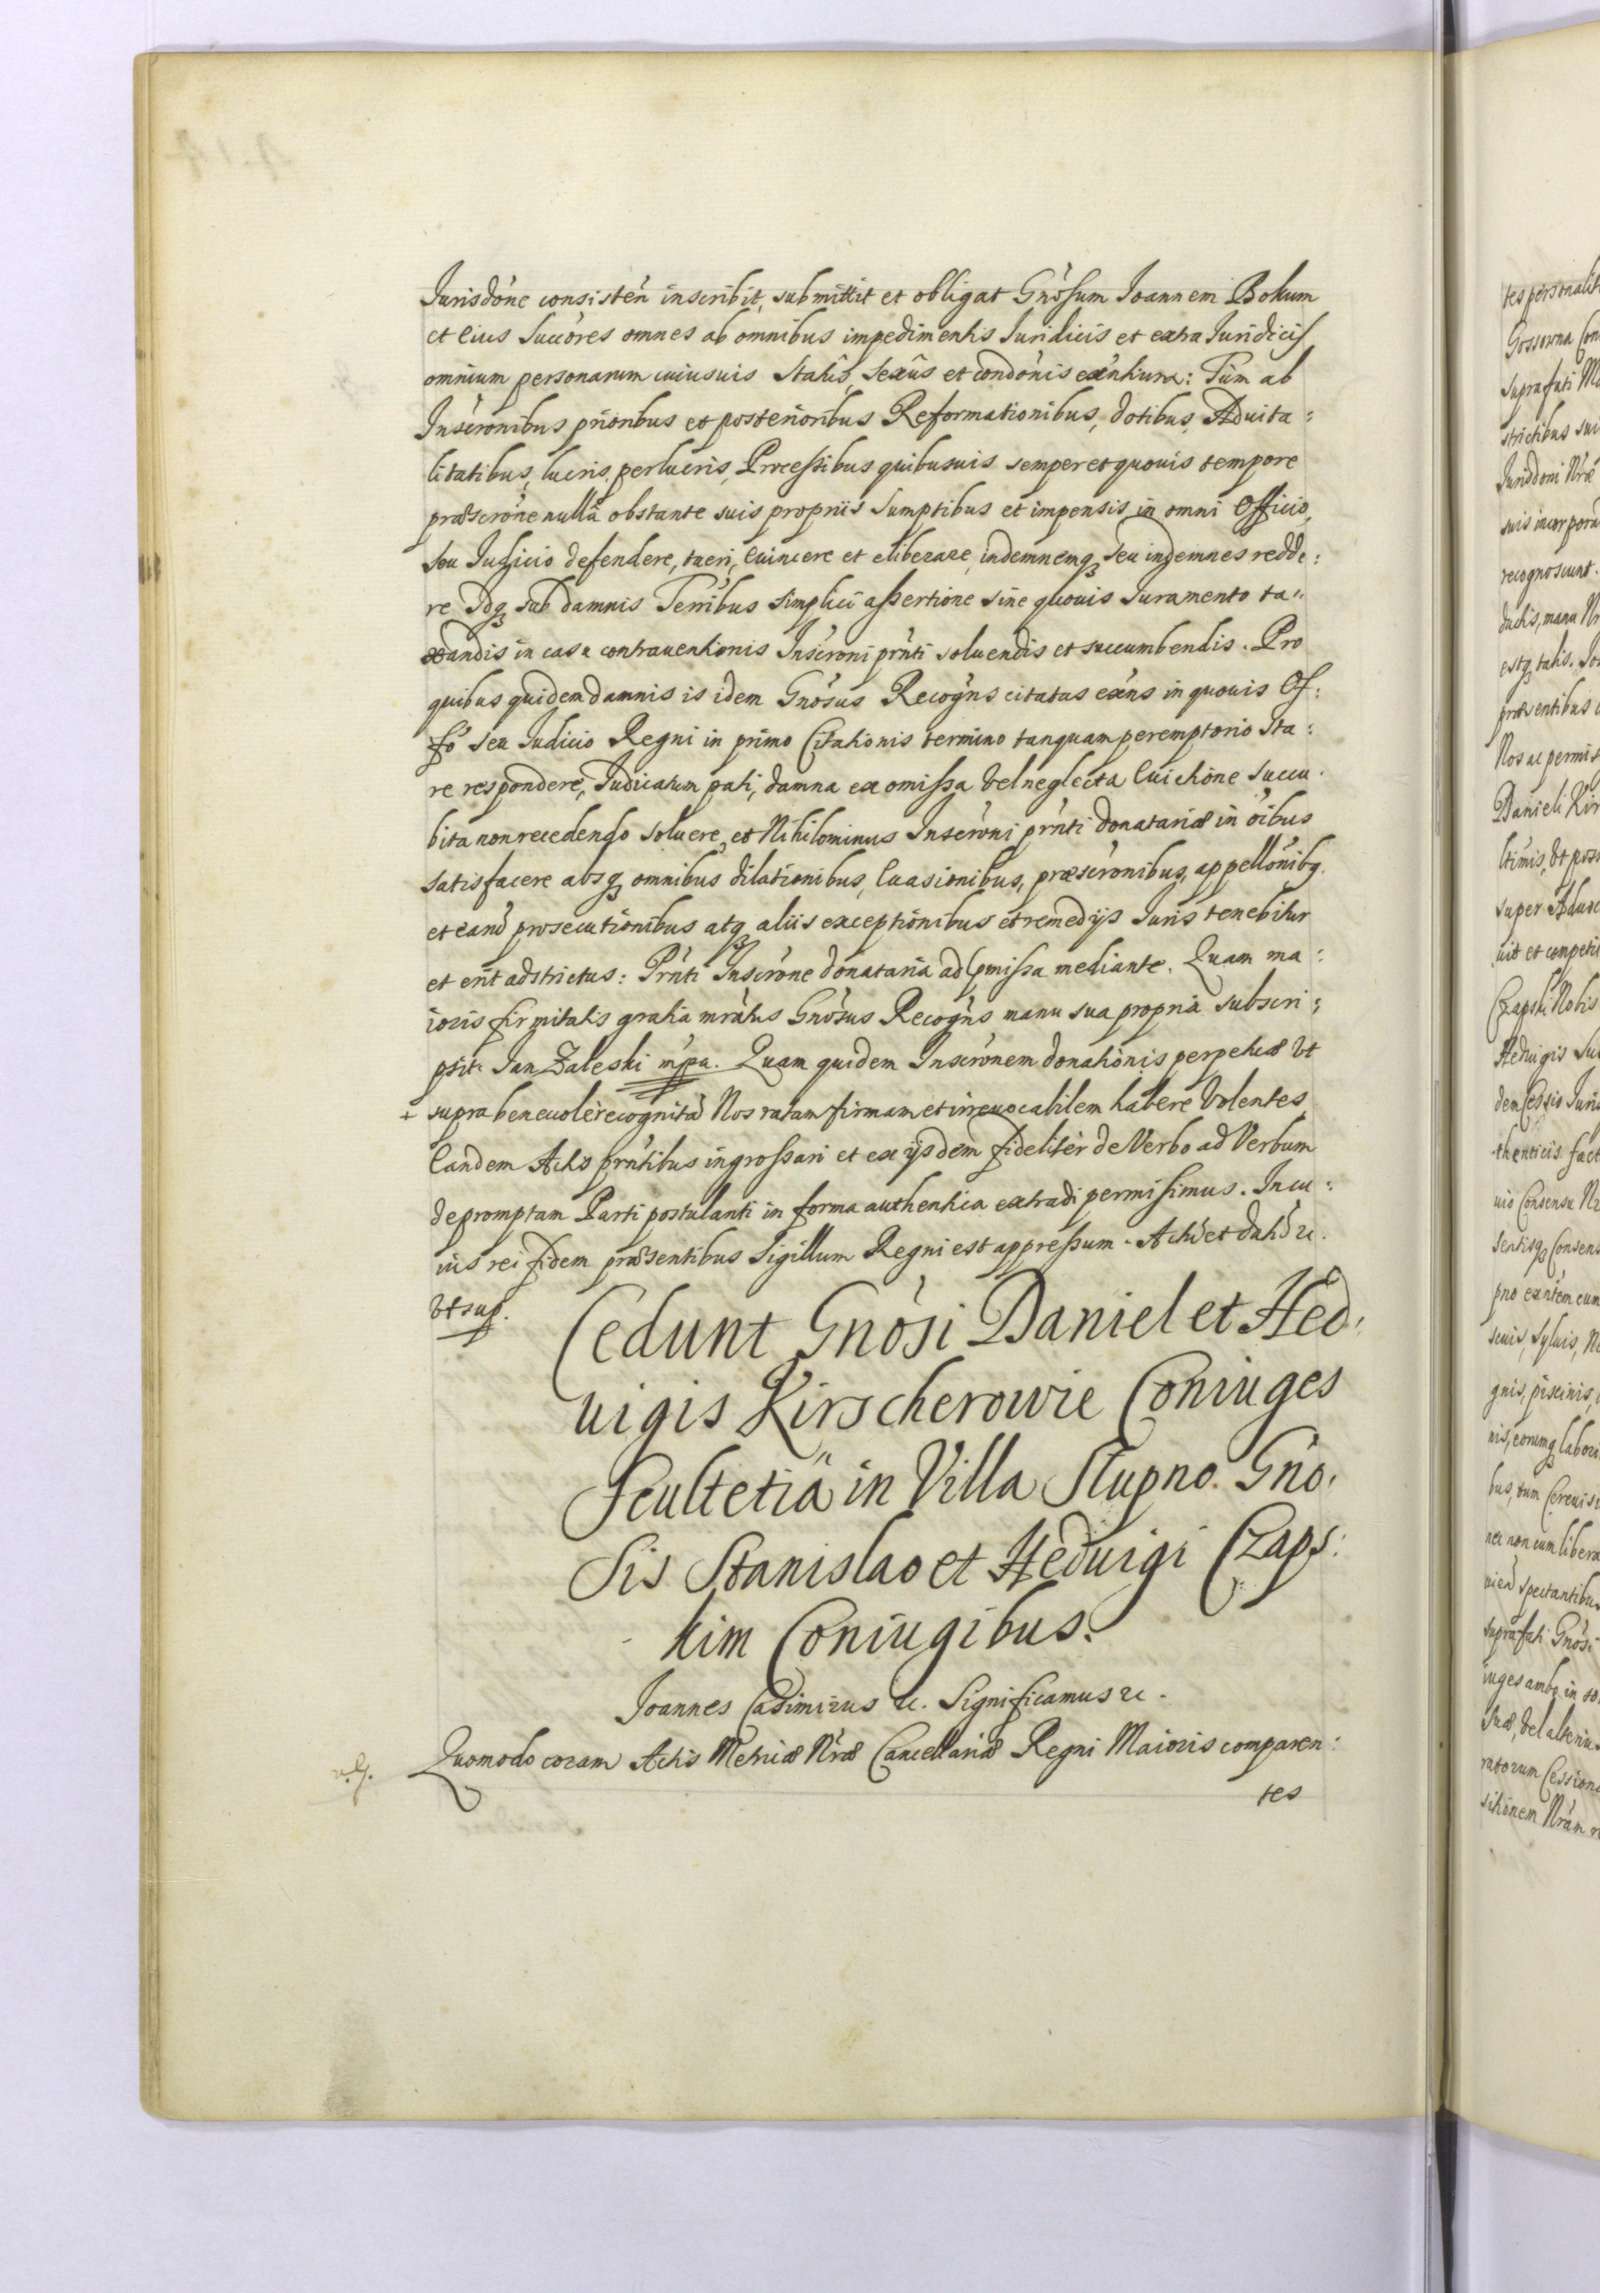 Jurisdone consisten inscribit, submittit et obligat Gnosum Joannem Bokum
et eius Succores omnes ab omnibus impedimentis Juridicis et extra Juridicis
omnium personarum cuiusuis Status, Sexus et condonis exntium: Tum ab
Inscronibus prioribus et posterioribus Reformationibus, dotibus, Aduita:
litatibus, lucris, perlucris, Processibus quibusuis semper et quouis tempore
præscrone nulla obstante suis propriis Sumptibus et impensis in omni Officio,
seu Judicio defendere, tueri, euincere et eliberare, indemnemq3 seu indemnes redde:
re Idq3 sub damnis Terribus simplici assertione sine quouis Juramento ta:
xandis in casu contrauentionis Inscroni prnti soluendis et succumbendis. Pro
quibus quidem damnis is idem Gnosus Recogns citatus exns in quouis Of:
fo seu Judicio Regni in primo Citationis termino tanquam peremptorio sta:
re respondere, Judicatum pati, damna ex omissa vel neglecta Euictione succu:
bita non recedendo soluere, et Nihilominus Inscroni prnti donatariæ in oibus
satisfacere absq3 omnibus dilationibus, Euasionibus, præscronibus, appellonibq.
et eand prosecutionibus atq3 aliis exceptionibus et remedijs Juris tenebitur
et erit adstrictus: Prnti Inscrone donataria ad pmissa mediante. Quam ma:
ioris firmitatis gratia mratus Gnosus Recogns manu sua propria subscri:
psit. Jan Zaleski mpa. Quam quidem Inscronem donationis perpetuæ vt
+ supra beneuole recognita Nos ratam firmam et irreuocabilem habere Volentes,
Eandem Actis prntibus ingrossari et ex ijsdem fideliter de Verbo ad Verbum
depromptam Parti postulanti in forma authentica extradi permisimus. In cu:
ius rei fidem præsentibus Sigillum Regni est appressum. Actu et datu &c.
vt sup.
Cedunt Gnosi Daniel et Hed:
uigis Kirscherowie Coniuges
Scultetia in Villa Słupno. Gno:
sis Stanislao et Heduigi Czaps:
kim Coniugibus.
Joannes Casimirus &c. Significamus &c.
Quomodo coram Actis Metricæ Nræ Cancellariæ Regni Maioris comparen:
tes